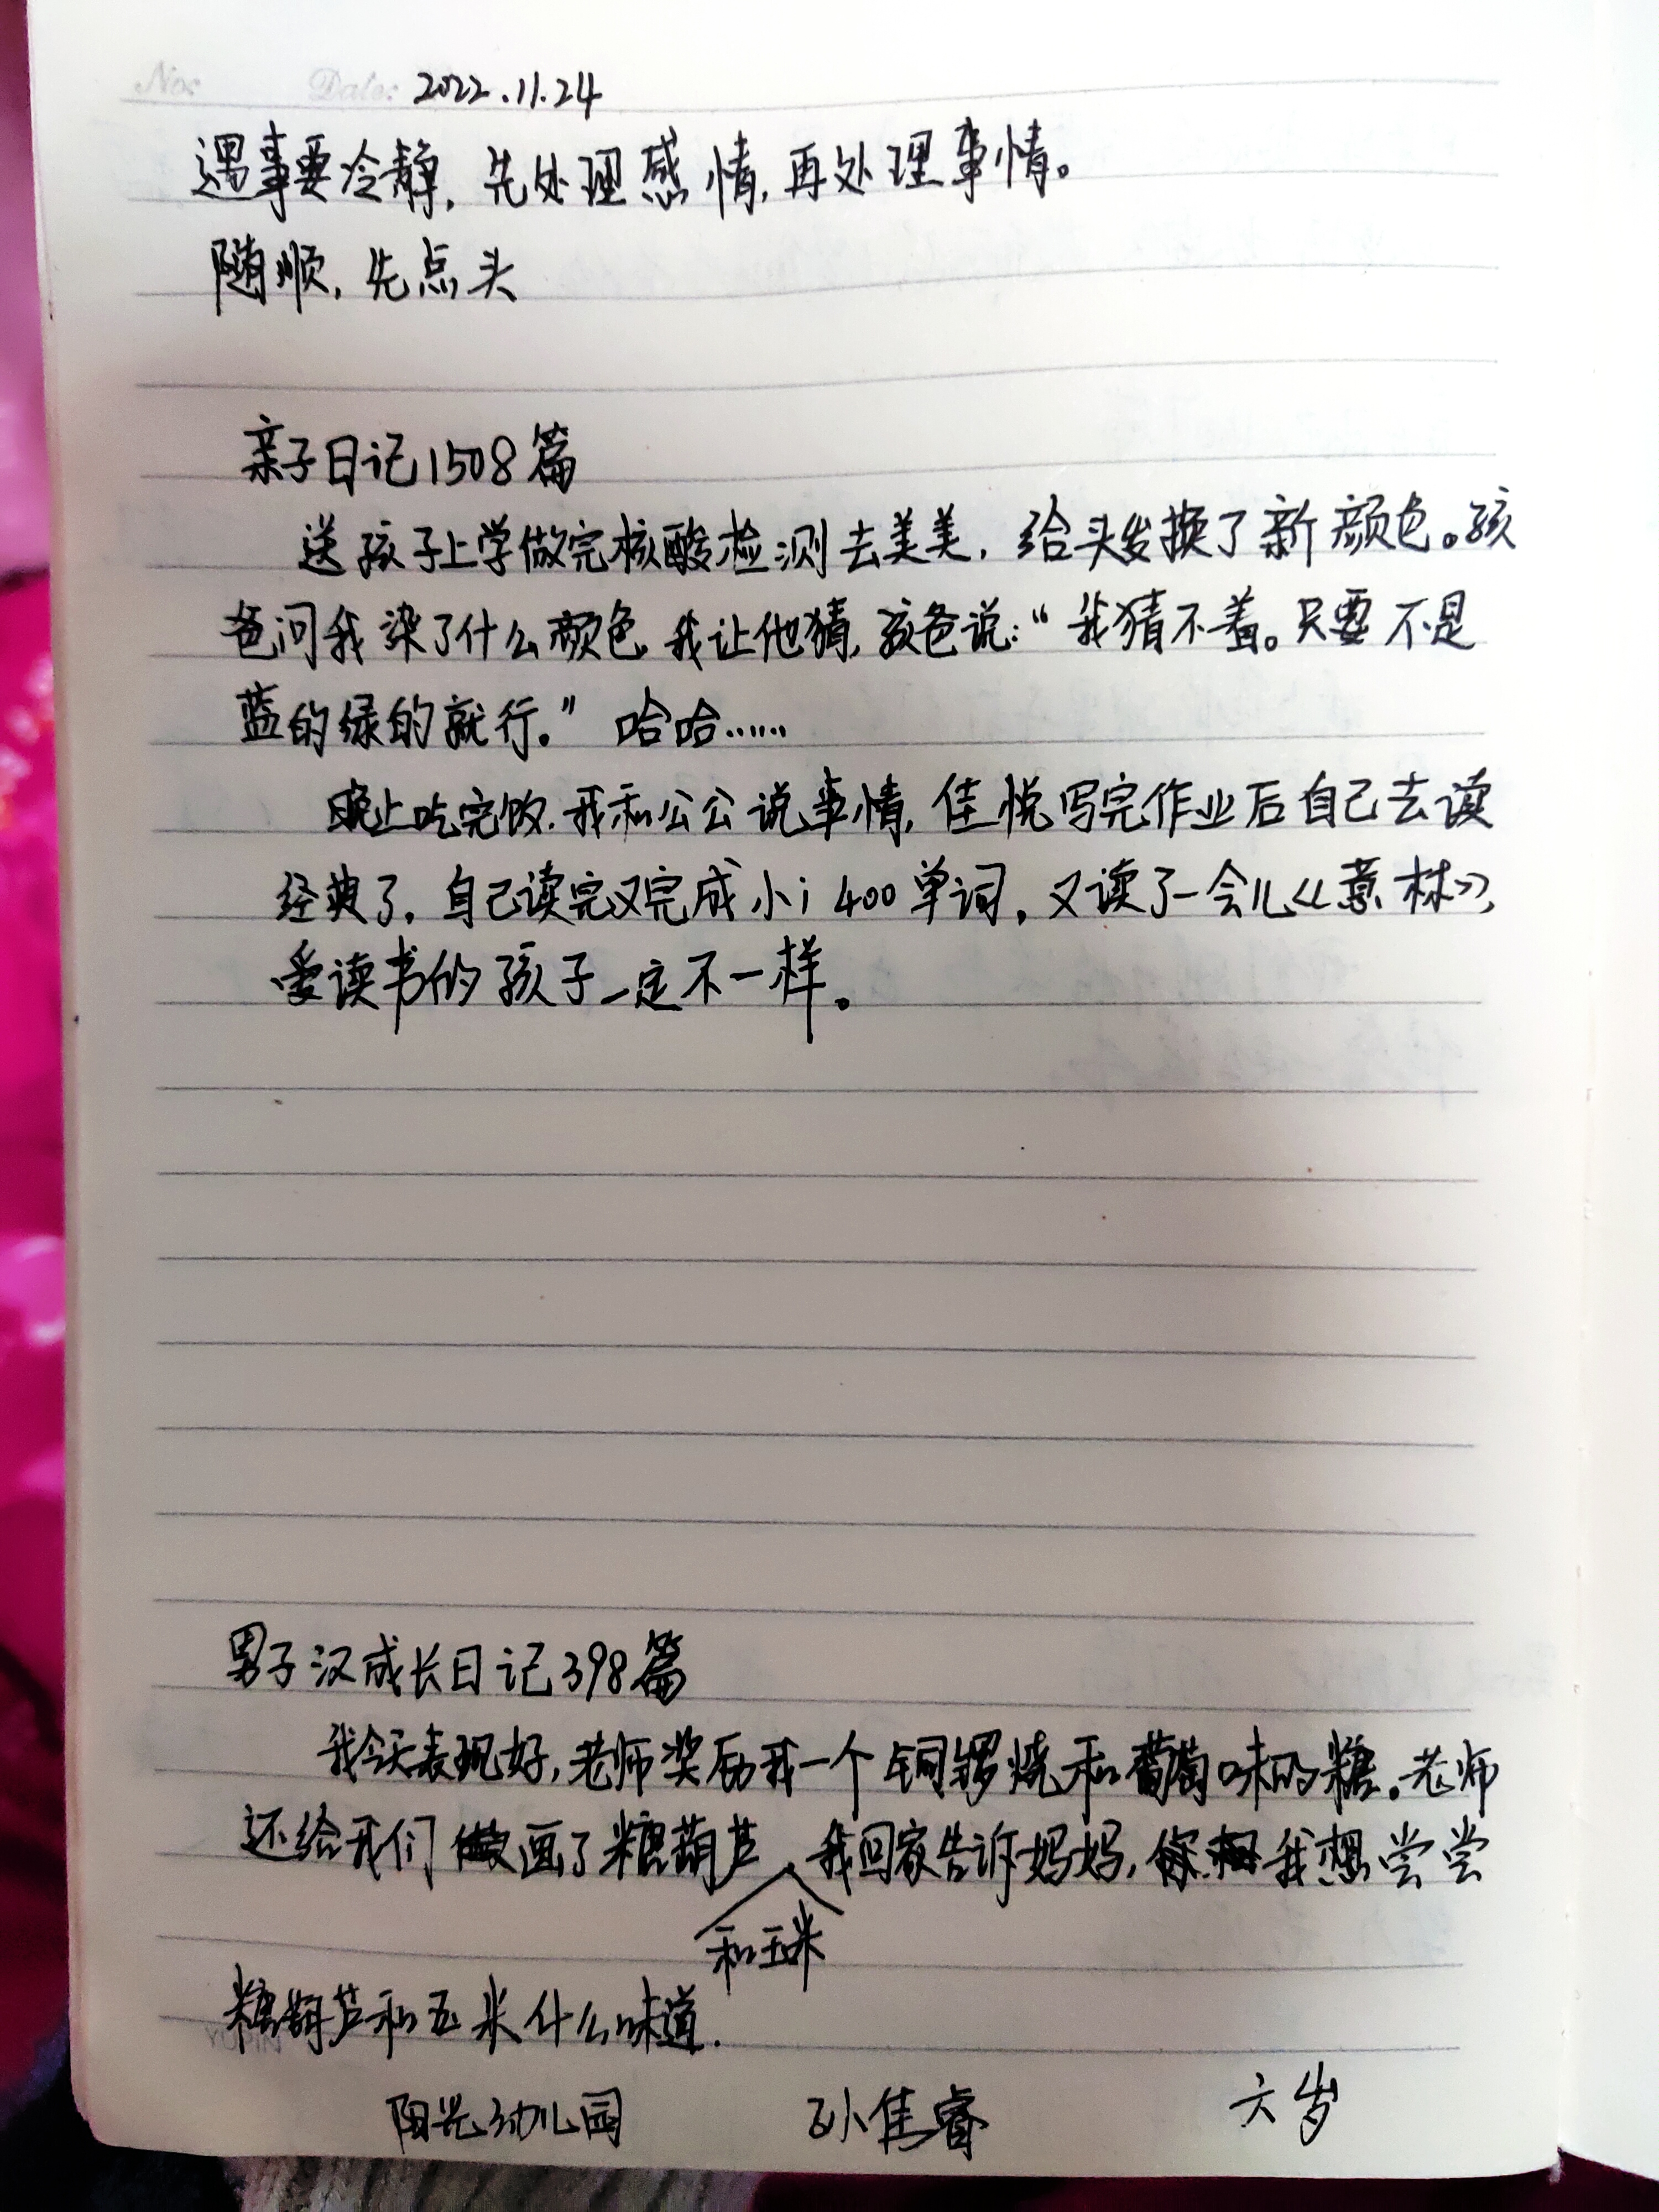 No: Date: 2022.11.24
遇事要冷静,先处理感情,再处理事情。
随顺,先点头
亲子日记1508篇
送孩子上学做完核酸检测去美美,给头发换了新颜色。孩
爸问我染了什么颜色,我让他猜,孩爸说:“我猜不着。只要不是
蓝的绿的就行。”哈哈……
晚上吃完饭,我和公公说事情,佳悦写完作业后自己去读
经典了,自己读完又完成小i 400单词,又读了一会儿《意林》,
爱读书的孩子一定不一样。
男子汉成长日记398篇
我今天表现好,老师奖励我一个铜锣烧和葡萄味的糖。老师
还给我们画了糖葫芦 我回家告诉妈妈,我想尝尝
和玉米
糖葫芦和玉米什么味道.
阳光幼儿园 孙佳睿 六岁